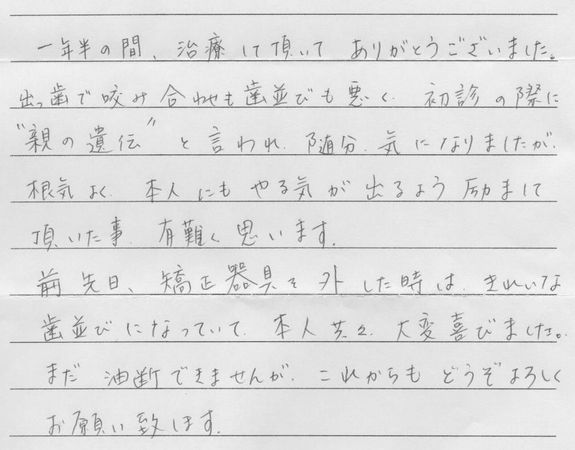 一年半の間、治療して頂いて ありがとうございました。
出っ歯で咬み合わせも歯並びも悪く、初診の際に
"親の遺伝" と言われ、随分、気になりましたが、
根気よく、本人にもやる気が出るよう励まして
頂いた事、有難く思います。
前先日、矯正器具を外した時は、きれいな
歯並びになっていて、本人共々、大変喜びました。
まだ 油断できませんが、これからも どうぞよろしく
お願い致します。